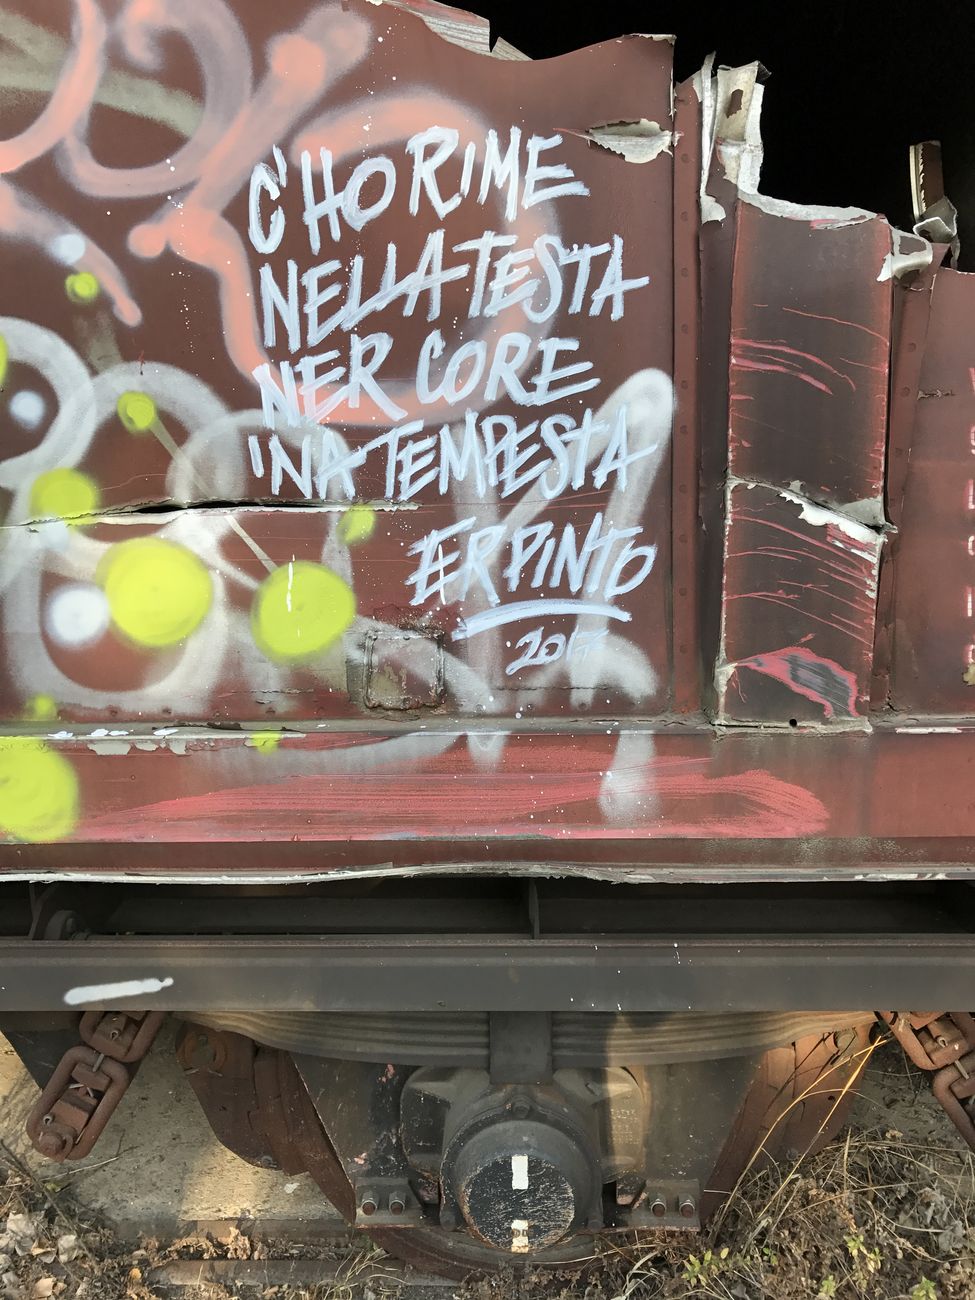 C'HO RIME
NELLA TESTA
NER CORE
'NA TEMPESTA
ER PINTO
2017